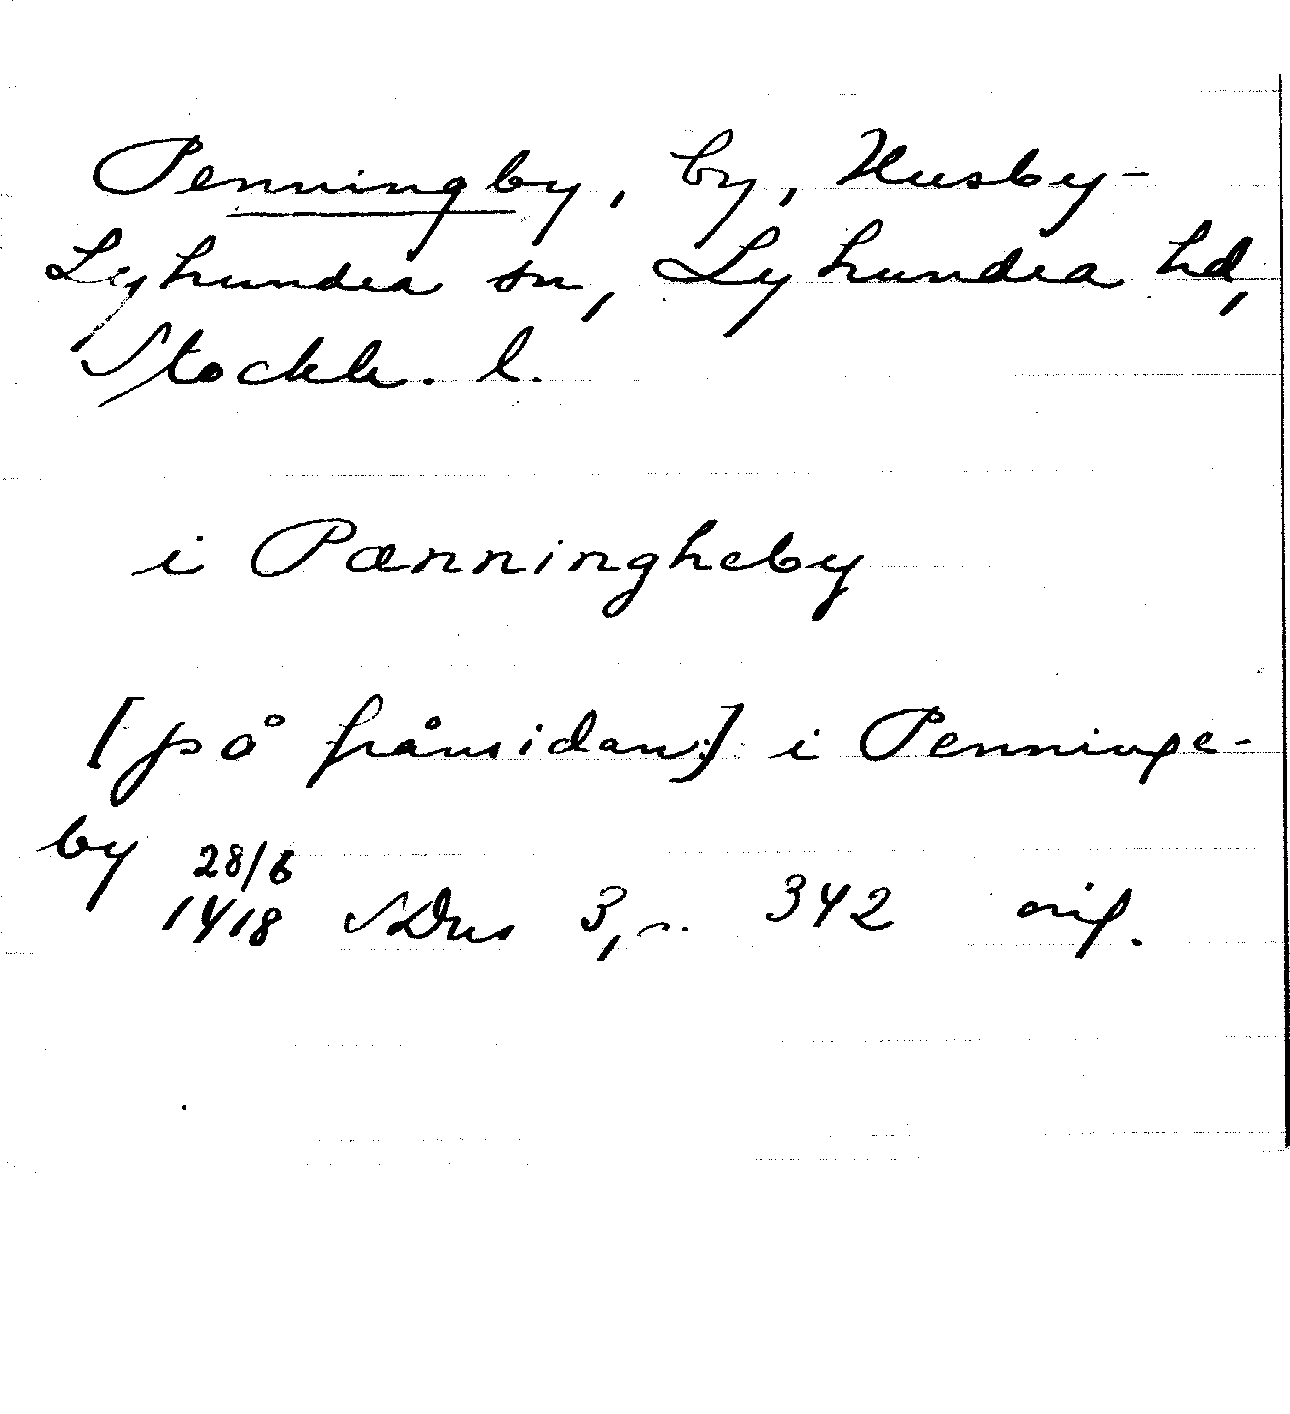 Penningby, by, Husby-
Lyhundra sn, Lyhundra hd,
Stockh. l.
i Pænningheby
[på frånsidan:] i Penninge-
by 28/6
1418 SDns 3, s. 342 orig.